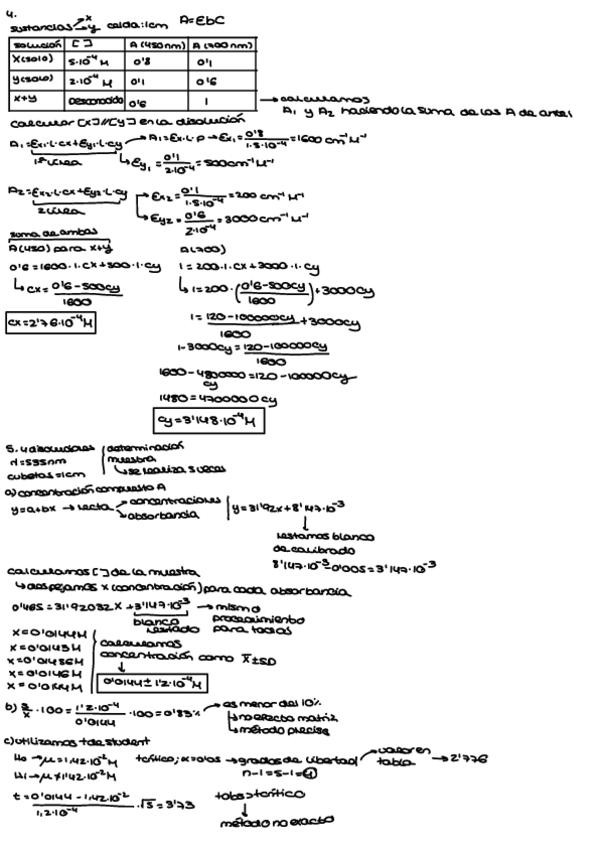 4.
sustancias x y celda: 1cm A=Ebc
solución [ ] A (450nm) A (700nm)
X(solo) 5·10⁻⁴ M 0'8 0'1
Y(solo) 2·10⁻⁴ M 0'1 0'6
x+y Desconocido 0'6 1 → calculamos
A₁ y A₂ haciendo la suma de las A de antes
calcular [X] // [Y] en la disolución
A₁=Ex₁·L·cx+Ey₁·L·cy → A₁=Ex·L·p → Ex₁=0'8/1·5·10⁻⁴=1600 cm⁻¹M⁻¹
1ª línea → Ey₁=0'1/2·10⁻⁴=500cm⁻¹M⁻¹
A₂=Ex₂·L·cx+Ey₂·L·cy → Ex₂=0'1/1·5·10⁻⁴=200 cm⁻¹M⁻¹
2 línea → Ey₂=0'6/2·10⁻⁴=3000cm⁻¹M⁻¹
suma de ambas
A(450) para x+y A(700)
0'6=1600·1·cx+500·1·cy 1=200·1·cx+3000·1·cy
↳ cx=0'6-500cy/1600 ↳ 1=200·(0'6-500cy/1600)+3000cy
cx=2'76·10⁻⁴M 1=120-100000cy/1600+3000cy
1-3000cy=120-100000cy/1600
1600-4800000cy=120-100000cy
1480=4700000cy
cy=3'148·10⁻⁴M
5. 4 disoluciones determinación
λ=535nm muestra
cubetas=1cm ↳ se realiza 5 veces
a) concentración compuesto A
y=a+bx → recta concentraciones absorbancia y=31'92x+8'147·10⁻³
restamos blanco
de calibrado
8'147·10⁻³-0'005=3'147·10⁻³
calculamos [ ] de la muestra
↳ despejamos x (concentración) para cada absorbancia
0'465=31'92032x+3'147·10⁻³ → mismo
blanco procedimiento
restado para todas
x=0'0144M
x=0'0143M calculamos
x=0'01436M concentración como x̄±SD
x=0'0146M
x=0'0144M 0'0144±1'2·10⁻⁴M
b) s/x̄·100=1'2·10⁻⁴/0'0144·100=0'83% → es menor del 10%
no efecto matriz
método preciso
c) utilizamos t de student
H₀ → μ=1,42·10⁻²M tcrítico; α=0'05 → grados de libertad → valor en tabla → 2'776
H₁ → μ≠1'42·10⁻²M n-1=5-1=4
t=0'0144-1,42·10⁻²/1,2·10⁻⁴·√5=3'73 tobs>tcrítico
método no exacto